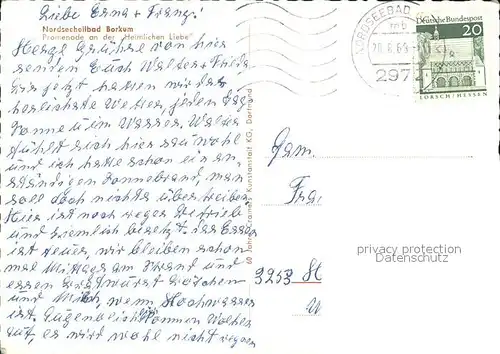 Liebe Erna + Franz!
Nordseeheilbad Borkum
Promenade an der "Heimlichen Liebe"
Herzl. Grüsse von hier
senden Euch Walter + Frieda
Bis jetzt hatten wir das
herrlichste Wetter, jeden Tag
Sonne u im Wasser. Walter
fühlt sich hier sauwohl
und ich hatte schon ein an-
ständigen Sonnebrand, man
soll doch nichts übertreiben.
Hier ist noch reger Betrieb
und ziemlich besetzt. das Essen
ist teuer, wir bleiben schon
mal Mittags am Strand und
essen Bratwurst
und Milch, wenn Hochwasser
ist. Augenblick kommen Wolken
auf, es wird wohl nicht regen
60 Jahre Cramers Kunstanstalt KG, Dortmund
NORDSEEBAD
20.8.69
2972
Deutsche Bundespost
20
LORSCH/HESSEN
Fam.
Fra
3253 H
privacy protection
Datenschutz